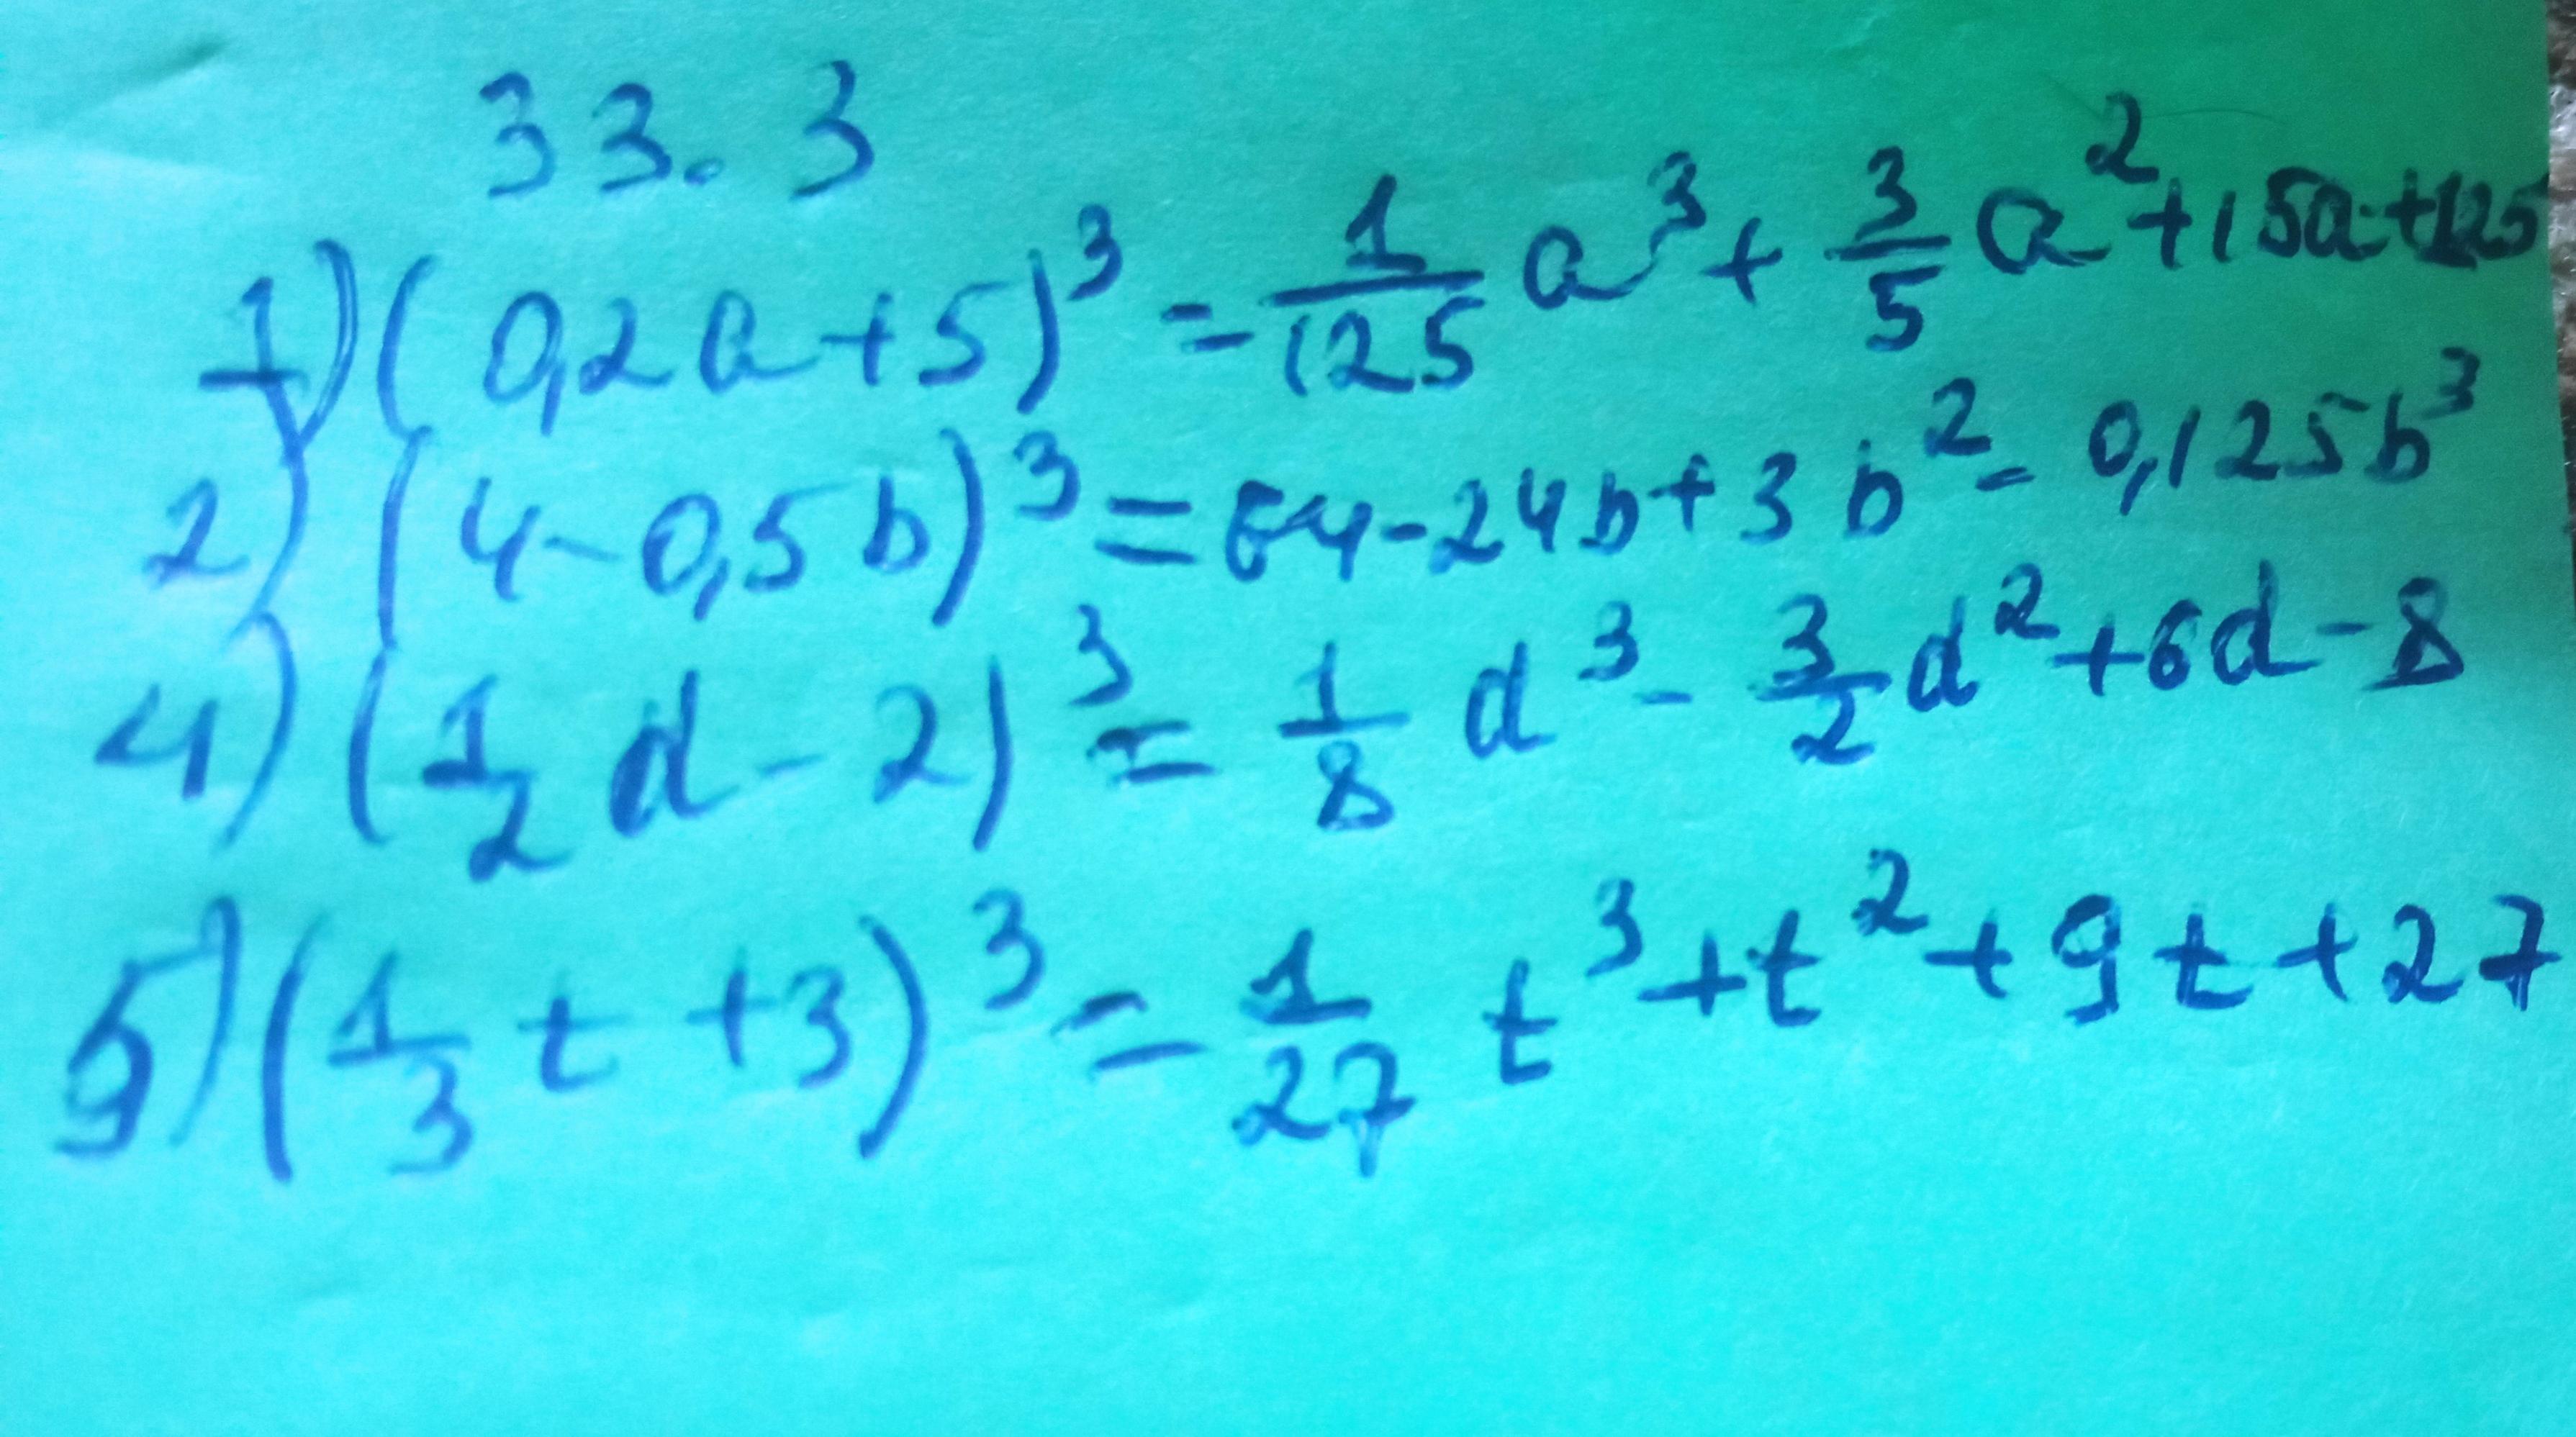 33.3
1) (0,2a+5)³ = 1/125 a³ + 3/5 a² + 15a + 125
2) (4-0,5b)³ = 64-24b+3b² - 0,125b³
4) (1/2 d - 2)³ = 1/8 d³ - 3/2 d² + 6d - 8
5) (1/3 t + 3)³ = 1/27 t³ + t² + 9t + 27